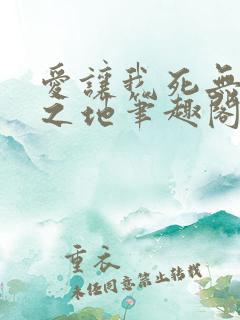 愛讓我死無
之地筆趣閣
重衣
未經同意禁止轉載